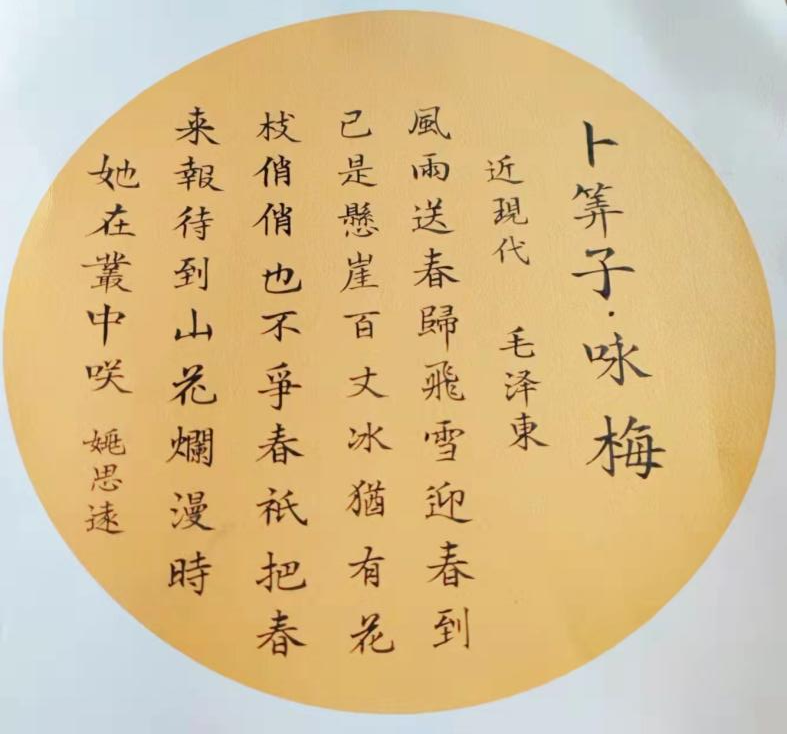 卜筭子·咏梅
近現代 毛泽東
風雨送春歸飛雪迎春到
已是懸崖百丈冰猶有花
枝俏俏也不爭春祇把春
来報待到山花爛漫時
她在叢中咲 姚思遠